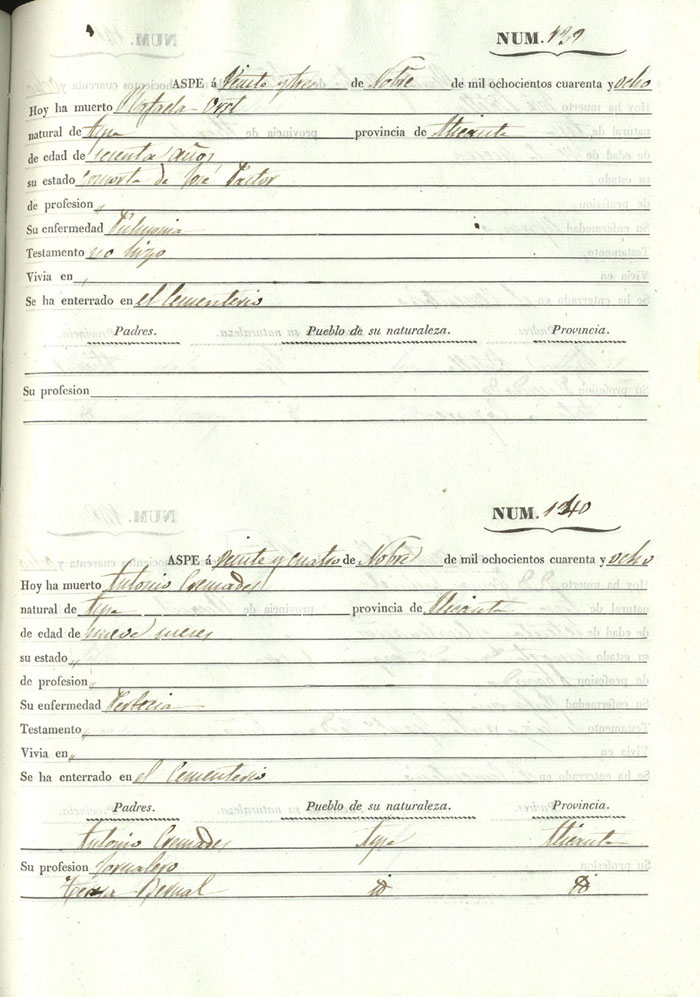 NUM. 139
ASPE á Veinte y tres de Nobre de mil ochocientos cuarenta y ocho
Hoy ha muerto Rafaela
natural de Aspe provincia de Alicante
de edad de sesenta años
su estado consorte de José Pastor
de profesion "
Su enfermedad Pulmonia
Testamento no hizo
Vivia en "
Se ha enterrado en el Cementerio
Padres. Pueblo de su naturaleza. Provincia.
Su profesion
NUM. 140
ASPE á veinte y cuatro de Nobre de mil ochocientos cuarenta y ocho
Hoy ha muerto Antonio Cremades
natural de Aspe provincia de Alicante
de edad de nueve meses
su estado "
de profesion "
Su enfermedad
Testamento "
Vivia en "
Se ha enterrado en el Cementerio
Padres. Pueblo de su naturaleza. Provincia.
Antonio Cremades Aspe Alicante
Su profesion Jornalero
Bernal id id